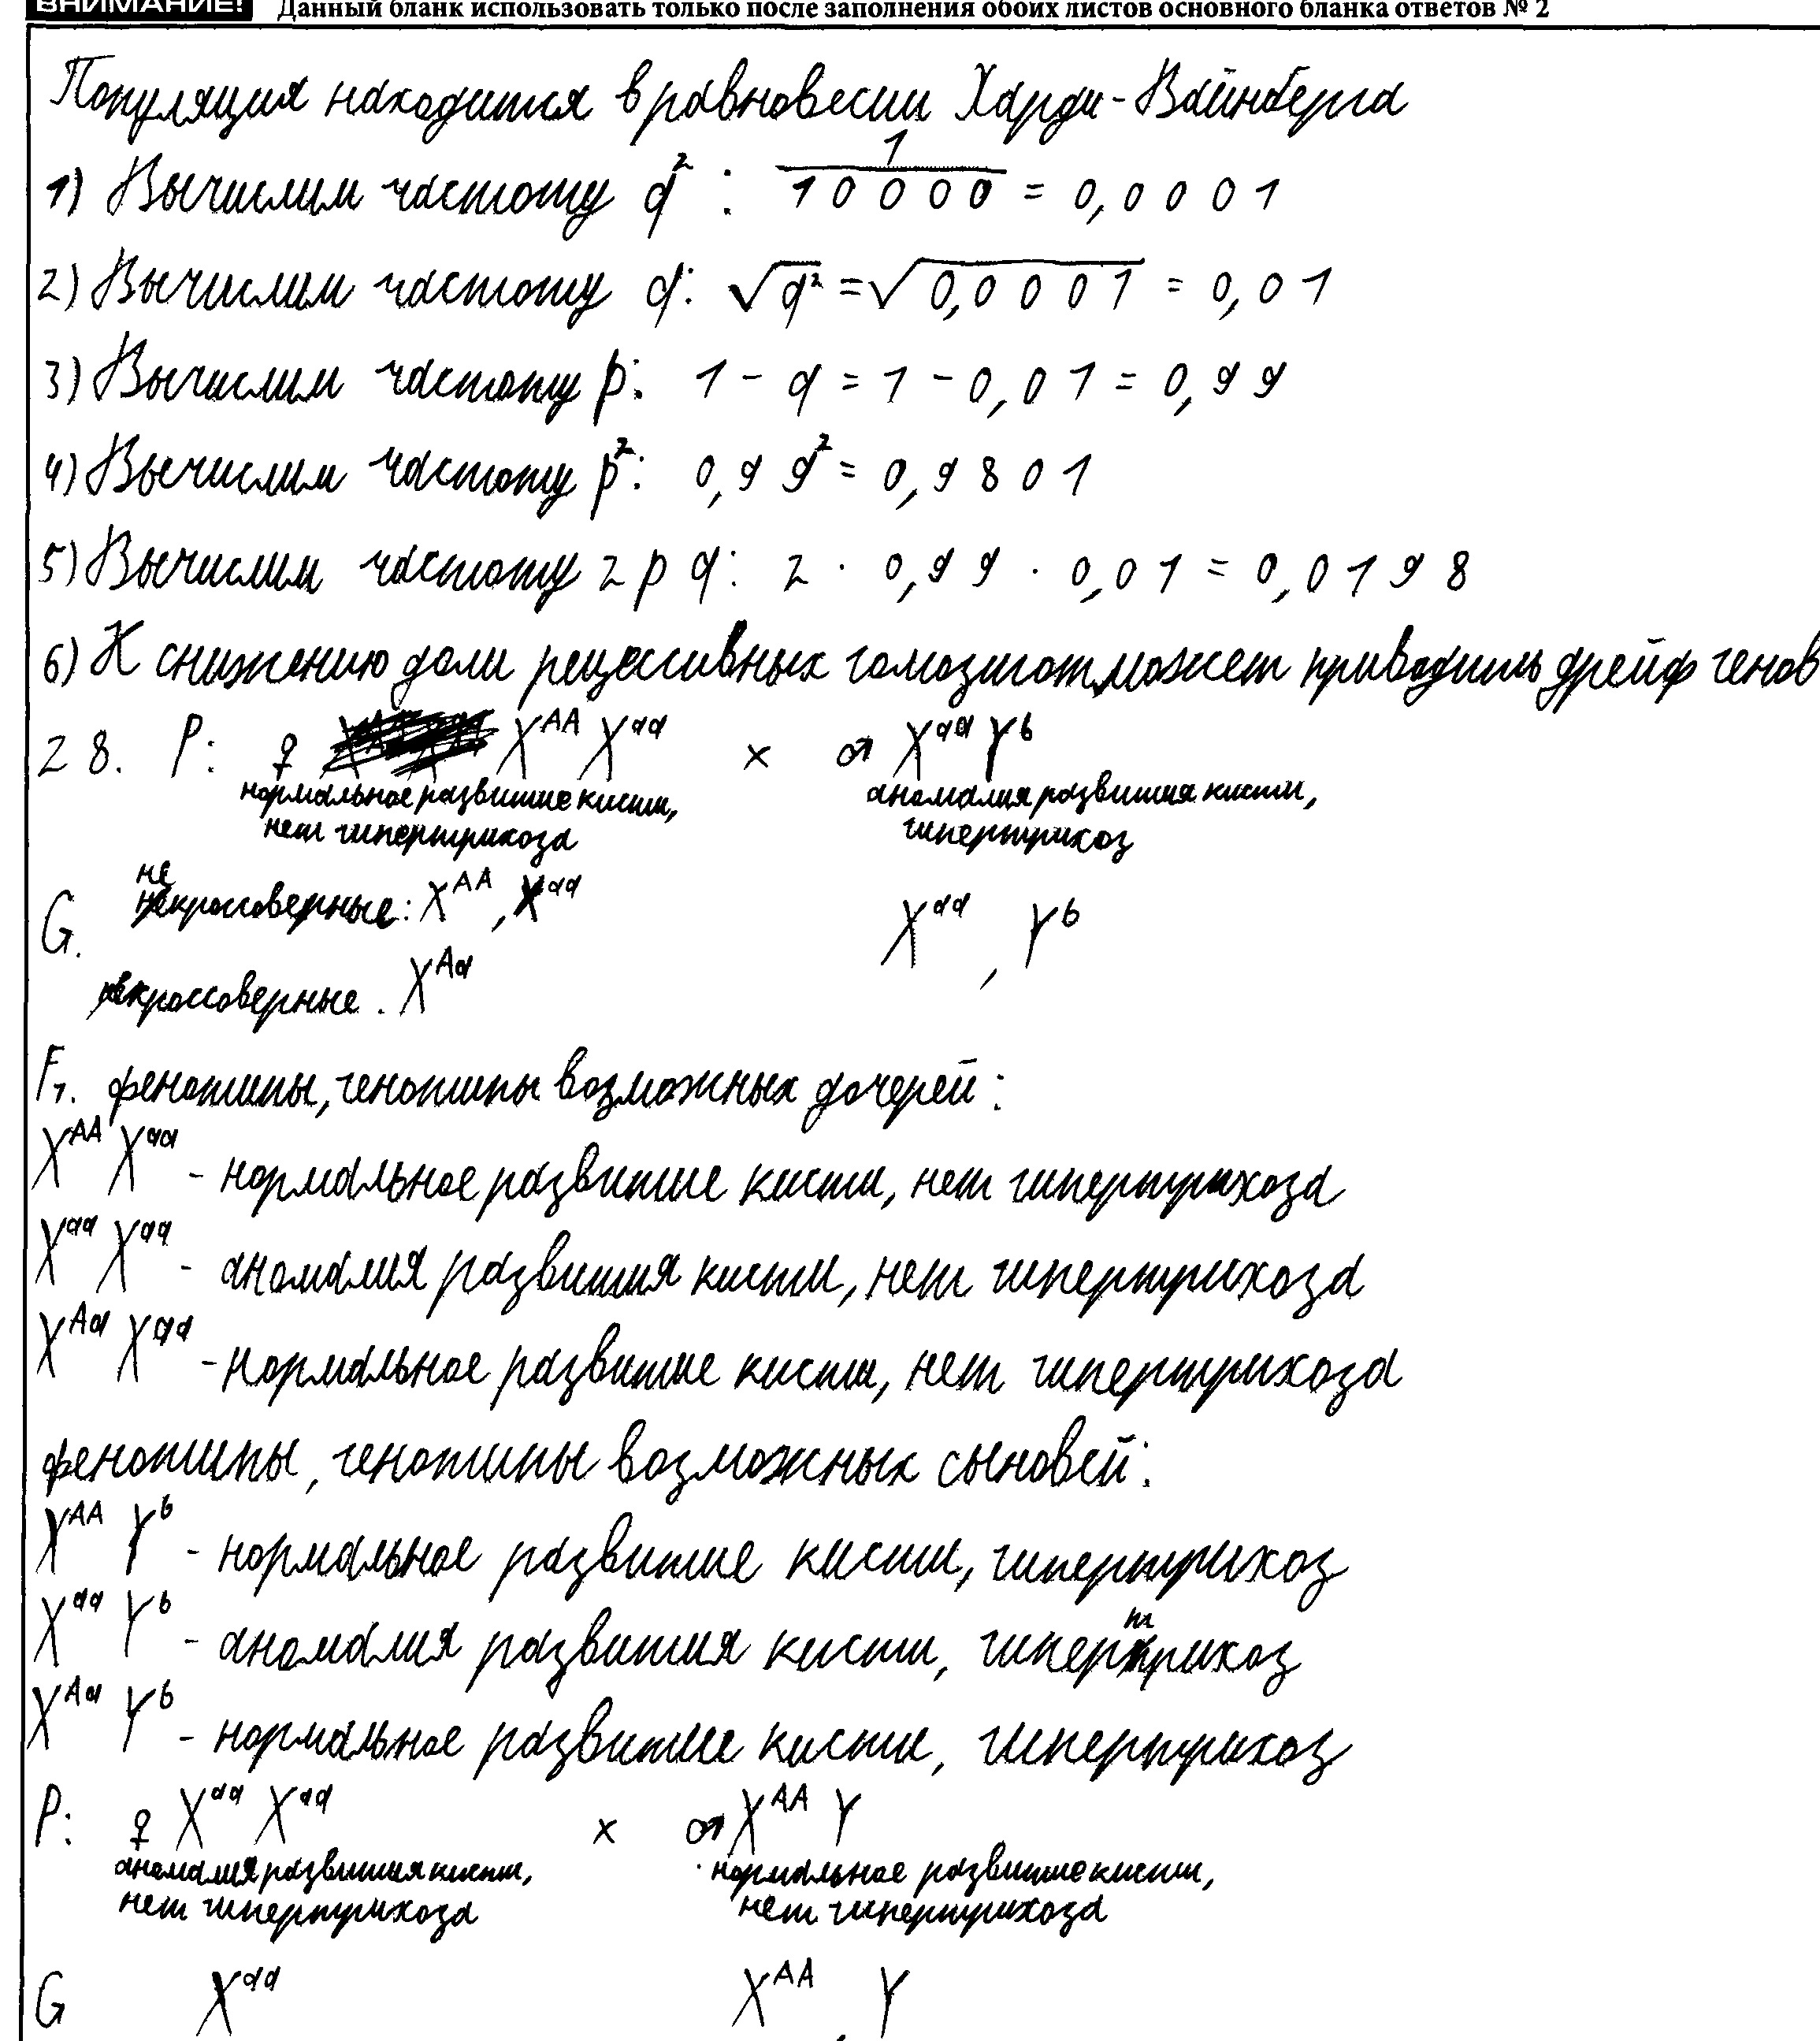 ВНИМАНИЕ! Данный бланк использовать только после заполнения обоих листов основного бланка ответов № 2
Популяция находится в равновесии Харди-Вайнберга
1) Вычислим частоту q²: 1/10000 = 0,0001
2) Вычислим частоту q: √q² = √0,0001 = 0,01
3) Вычислим частоту p: 1 - q = 1 - 0,01 = 0,99
4) Вычислим частоту p²: 0,99² = 0,9801
5) Вычислим частоту 2pq: 2 · 0,99 · 0,01 = 0,0198
6) К снижению доли рецессивных гомозигот может приводить дрейф генов
28. P: ♀ X^AA X^aa × ♂ X^aa Y^b
нормальное развитие кисти, аномалия развития кисти,
нет гипертрихоза гипертрихоз
G. некроссоверные: X^AA, X^aa X^aa, Y^b
кроссоверные. X^Aa
F1. фенотипы, генотипы возможных дочерей:
X^AA X^aa - нормальное развитие кисти, нет гипертрихоза
X^aa X^aa - аномалия развития кисти, нет гипертрихоза
X^Aa X^aa - нормальное развитие кисти, нет гипертрихоза
фенотипы, генотипы возможных сыновей:
X^AA Y^b - нормальное развитие кисти, гипертрихоз
X^aa Y^b - аномалия развития кисти, гипертрихоз
X^Aa Y^b - нормальное развитие кисти, гипертрихоз
P: ♀ X^aa X^aa × ♂ X^AA Y
аномалия развития кисти, нормальное развитие кисти,
нет гипертрихоза нет гипертрихоза
G X^aa X^AA, Y